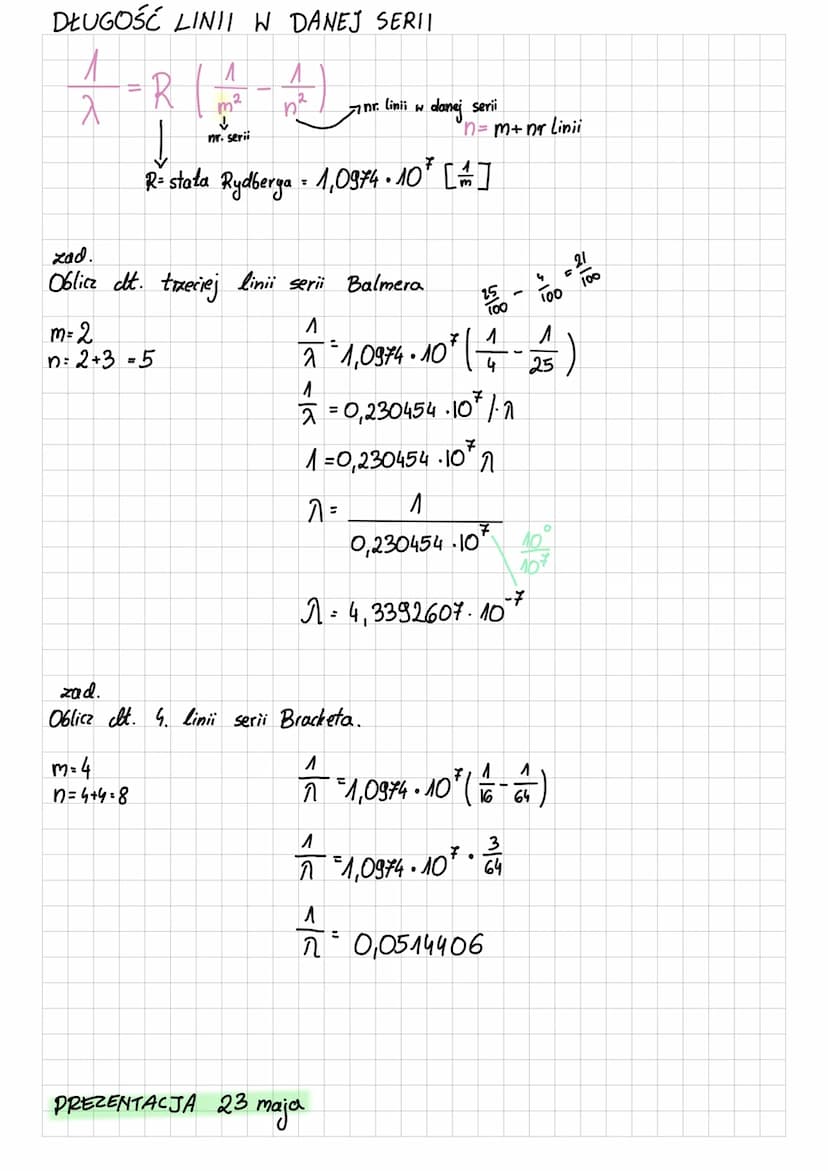 DŁUGOŚĆ LINII W DANEJ SERII
1/λ = R (1/m² - 1/n²)
nr. linii w danej serii
nr. serii
n = m + nr linii
R = stała Rydberga = 1,0974 · 10⁷ [1/m]
zad.
Oblicz dł. trzeciej linii serii Balmera
25/100 - 4/100 = 21/100
m = 2
n = 2+3 = 5
1/λ = 1,0974 · 10⁷ (1/4 - 1/25)
1/λ = 0,230454 · 10⁷ /· λ
1 = 0,230454 · 10⁷ λ
λ = 1/(0,230454 · 10⁷)
10⁰/10⁷
λ = 4,3392607 · 10⁻⁷
zad.
Oblicz dł. 4. linii serii Bracketa.
m = 4
n = 4+4 = 8
1/λ = 1,0974 · 10⁷ (1/16 - 1/64)
1/λ = 1,0974 · 10⁷ · 3/64
1/λ = 0,0514406
PREZENTACJA 23 maja